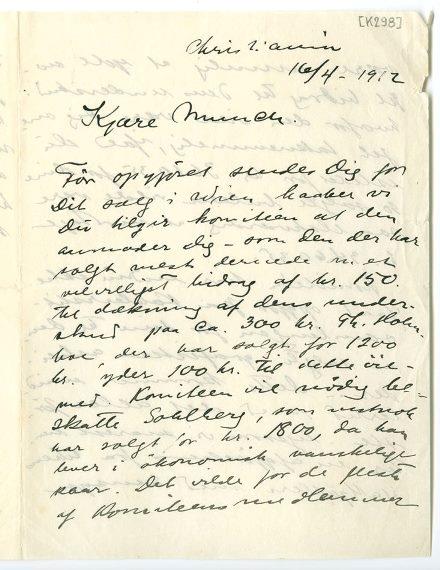 [K298]
Christiania
16/4 - 1912
Kjære Munch.
Før opgjöret sendes Dig for
Dit salg i Wien haaber vi
Du tilgir komitéen at den
anmoder dig – som den der har
solgt mest dernede m. et
velvilligst bidrag af kr. 150.
til dækning af dens under-
skud paa ca. 300 kr. Th. Holm-
boe der har solgt for 1200
kr. yder 100 kr. til dette öie-
med. Komitéen vil nödig be-
skatte Sohlberg, som vistnok
har solgt for kr. 1800, da han
lever i økonomisk vanskelige
kaar. Det vilde for de fleste
af Komitéens medlemmer